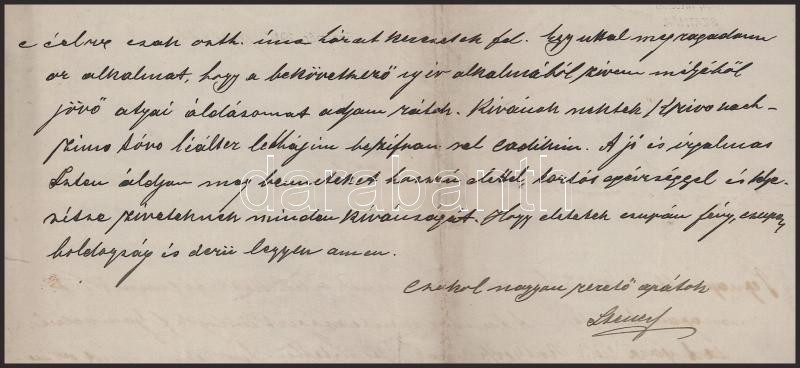 e célra csak orth. imakönyvet keressetek fel. Egyuttal megragadom
az alkalmat, hogy a bekövetkező uj év alkalmából szivem mélyéből
jövő atyai áldásomat adjam rátok. Kivánok nektek
tóvo lealter lechájim bezifron sel cadikim. A jó és irgalmas
Isten áldjon meg benneteket hosszú élettel, tartós egészséggel és telje-
sitse sziveteknek minden kivánságát. Hogy életetek csupán fény, csupa
boldogság és derü legyen amen.
Csókol nagyon szerető apátok
darabanth